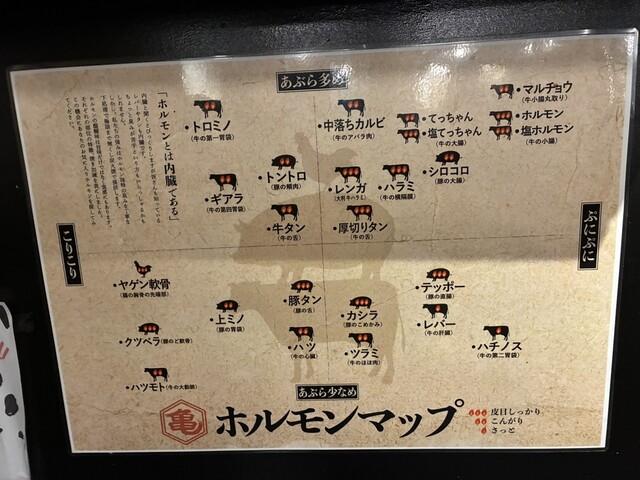 あぶら多め
「ホルモンとは内臓である」
・トロミノ
(牛の第一胃袋)
・中落ちカルビ
(牛のアバラ肉)
・てっちゃん
・塩てっちゃん
(牛の大腸)
・マルチョウ
(牛小腸丸取り)
・ホルモン
・塩ホルモン
(牛の小腸)
・トントロ
(豚の頬肉)
・シロコロ
(豚の大腸)
・ギアラ
(牛の第四胃袋)
・レンガ
・ハラミ
(牛の横隔膜)
・牛タン
(牛の舌)
・厚切りタン
(牛の舌)
こりこり
ぷにぷに
・ヤゲン軟骨
(鶏の胸骨の先端部)
・豚タン
(豚の舌)
・テッポー
(豚の直腸)
・上ミノ
(牛の胃袋)
・カシラ
(豚のこめかみ)
・レバー
(牛の肝臓)
・クツベラ(豚のど軟骨)
・ハツ
(牛の心臓)
・ツラミ
(牛のほほ肉)
・ハチノス
(牛の第二胃袋)
・ハツモト(牛の大動脈)
あぶら少なめ
亀
ホルモンマップ
皮目しっかり
こんがり
さっと